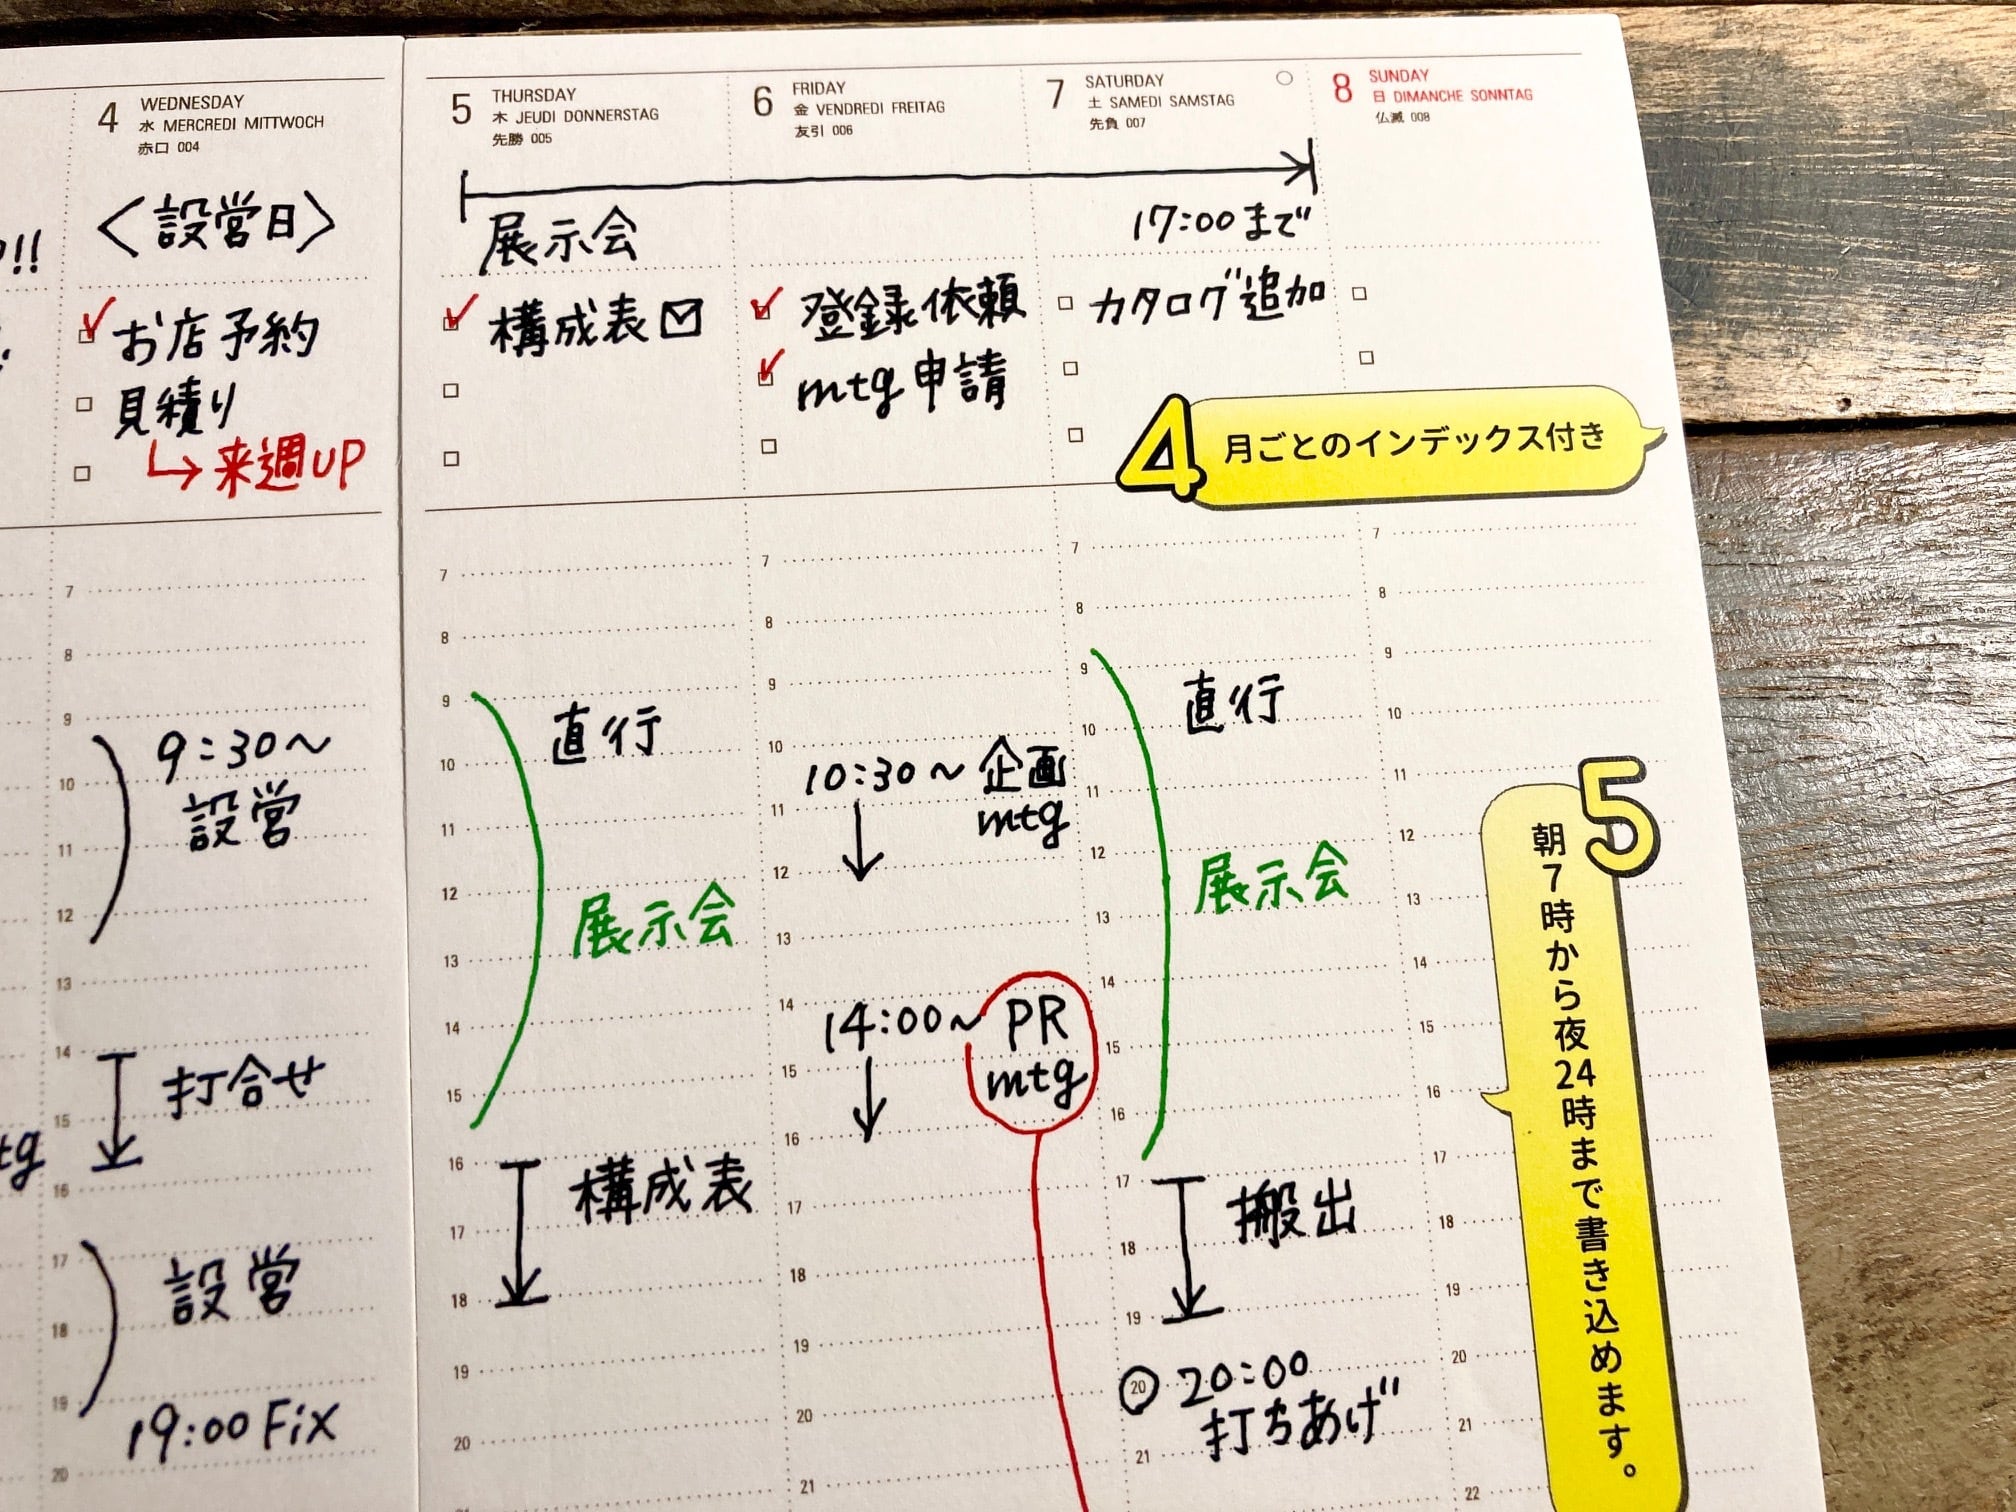 4 WEDNESDAY
水 MERCREDI MITTWOCH
赤口 004
<設営日>
!!
お店予約
見積り
↳来週UP
7
8
9
9:30~
設営
10
11
12
13
14
打合せ
15
tg
16
17
設営
18
19
19:00 Fix
20
5 THURSDAY
木 JEUDI DONNERSTAG
先勝 005
展示会
構成表
7
8
9
直行
10
11
12
展示会
13
14
15
16
構成表
17
18
19
20
6 FRIDAY
金 VENDREDI FREITAG
友引 006
登録依頼
mtg申請
7
8
9
10
10:30~企画
mtg
11
12
13
14
14:00~PR
mtg
15
16
17
18
19
20
21
7 SATURDAY
土 SAMEDI SAMSTAG
先負 007
17:00まで
カタログ追加
7
8
9
直行
10
11
12
展示会
13
14
15
16
17
搬出
18
19
20 20:00
打ちあげ
21
8 SUNDAY
日 DIMANCHE SONNTAG
仏滅 008
7
8
9
10
11
12
13
14
15
16
17
18
19
20
21
22
4 月ごとのインデックス付き
5
朝7時から夜24時まで書き込めます。